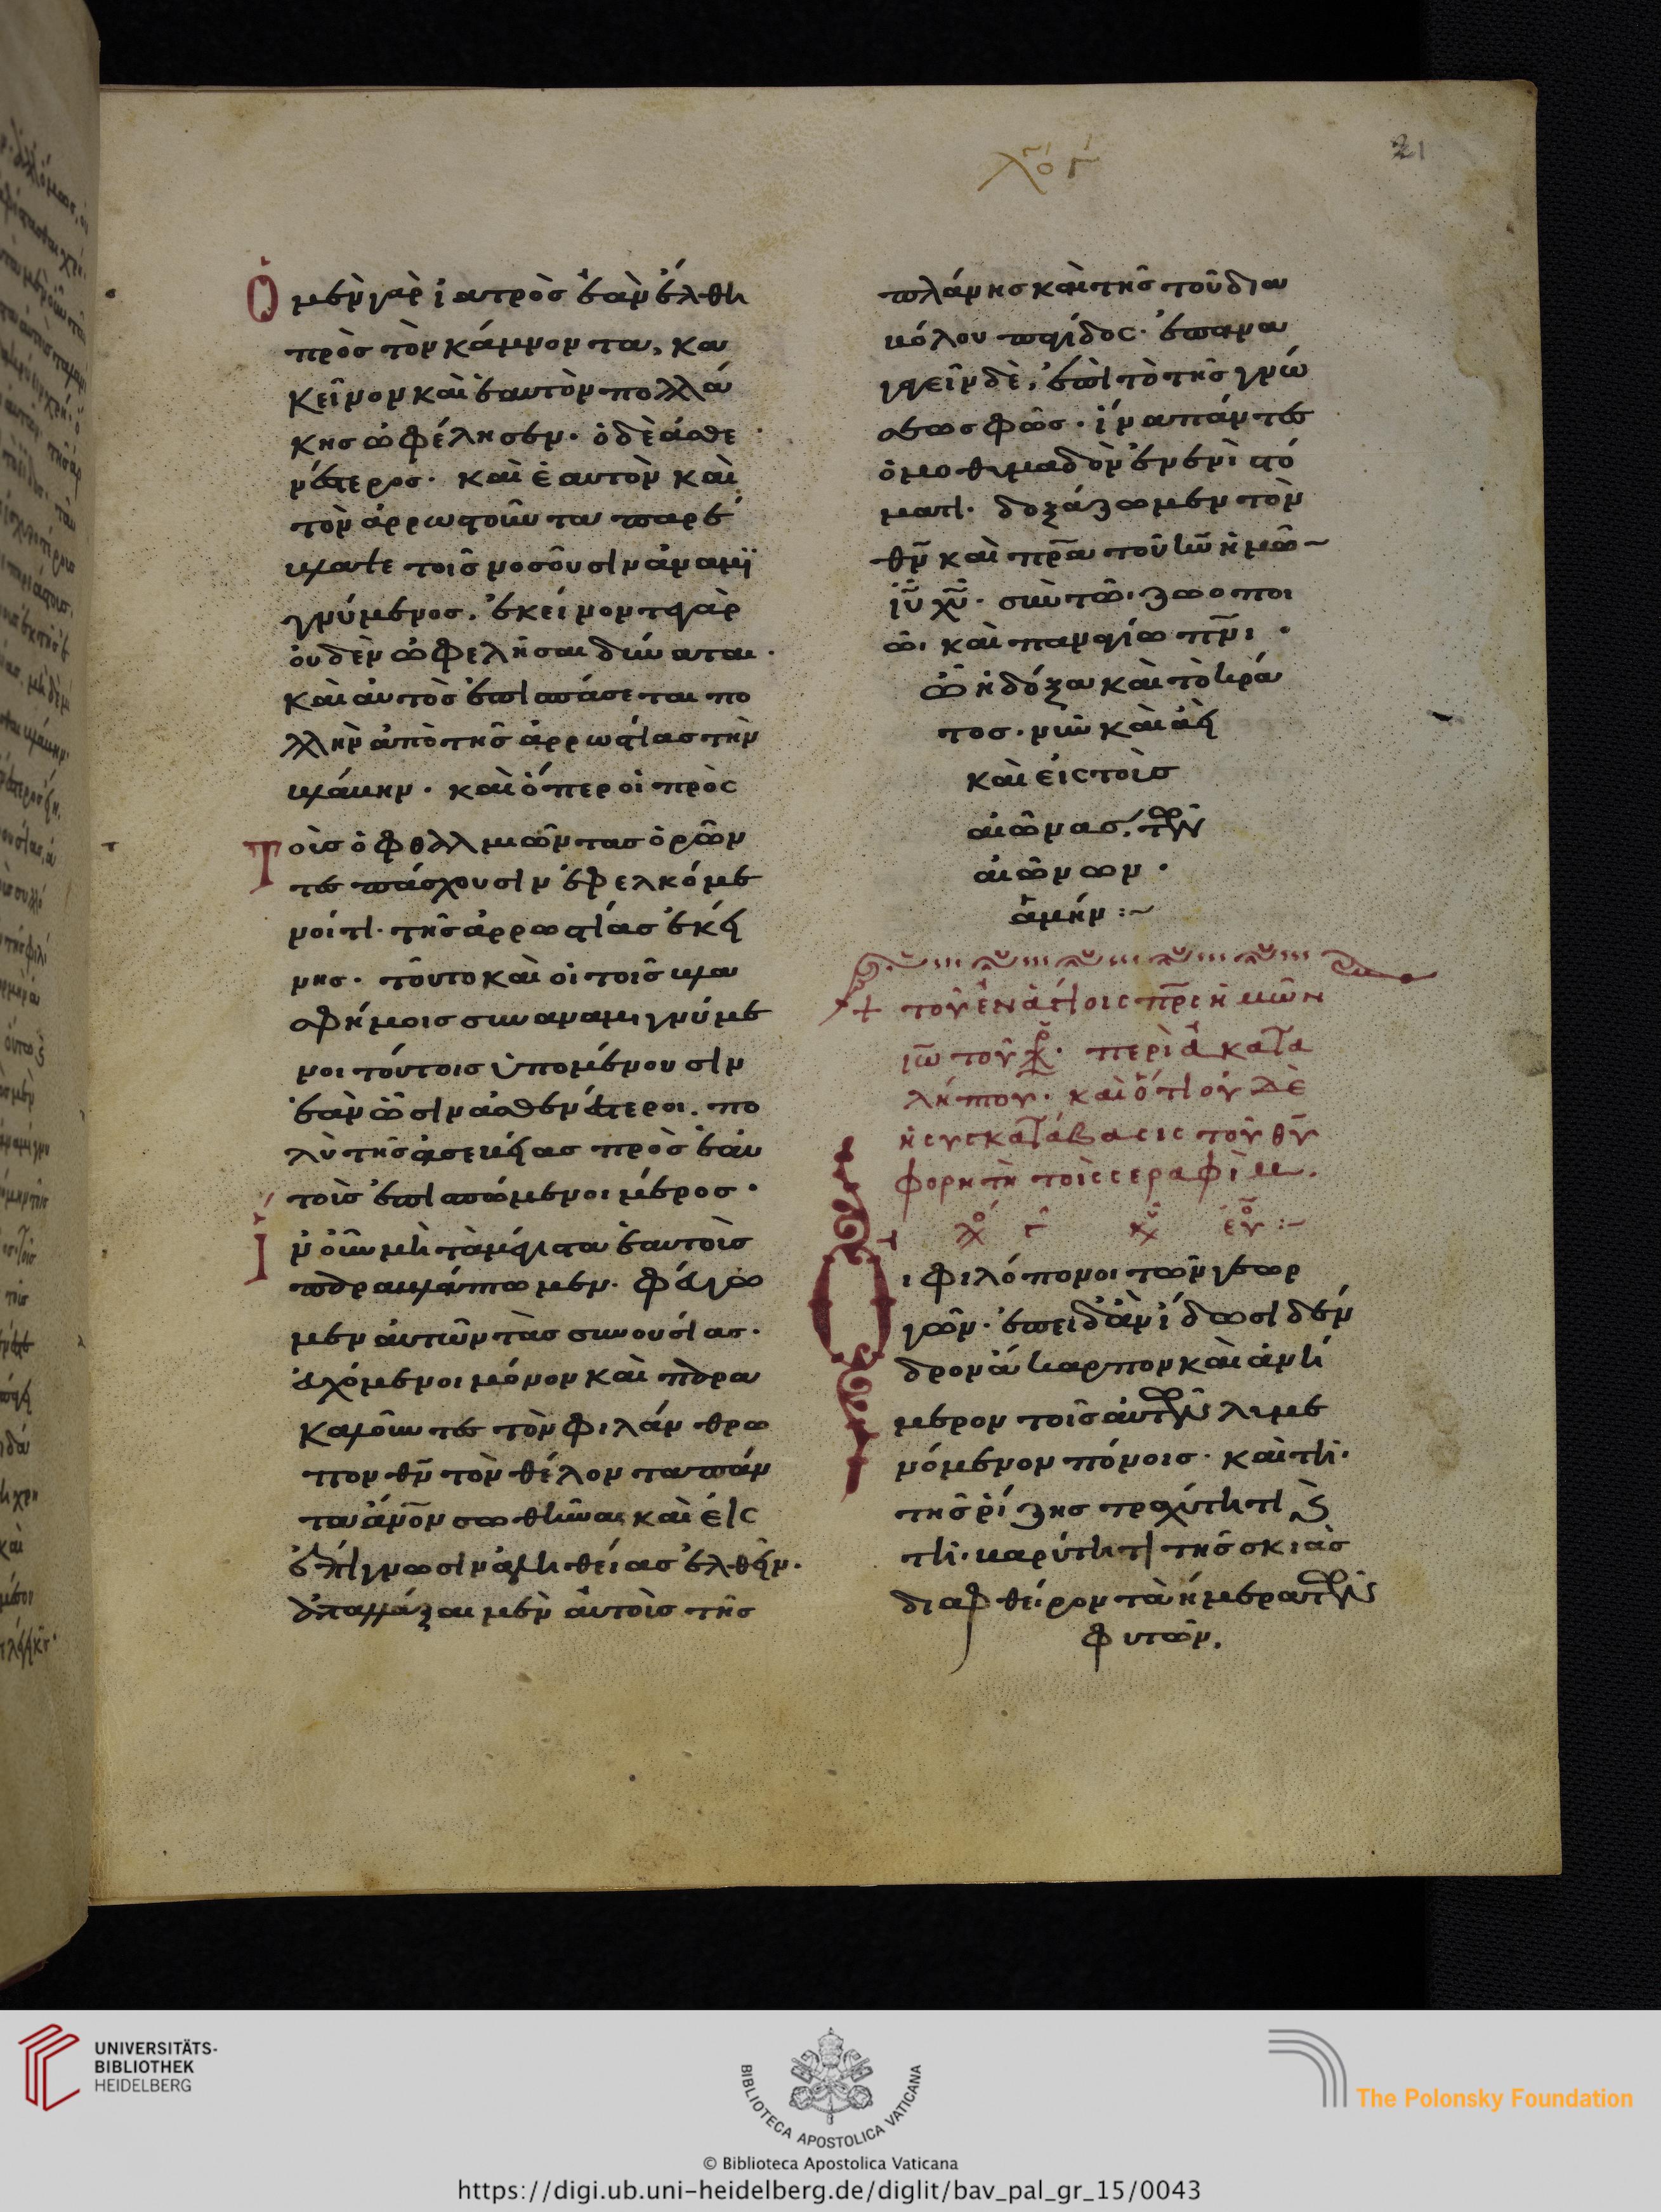 λόγ
21
Ὁ μὲν γὰρ ἰατρὸσ ἐὰν ἔλθη
πρὸσ τὸν κάμνοντα, κα
κεῖνον καὶ ἑαυτὸν πολλά
κησ ὠφέλησεν· ὁ δὲ ἀσθε
νέστεροσ· καὶ ἑαυτὸν καὶ
τὸν ἀρρωστοῦντα παρέ
βλαψε τοῖσ νοσοῦσιν ἀναμϊ
γνύμενοσ. ἐκεῖνον τε γὰρ
οὐδὲν ὠφελῆσαι δύναται·
καὶ αὐτὸσ ἐπισπάσεται πο
λλὴν ἀπὸ τῆσ ἀρρωστίασ τὴν
βλάβην· καὶ ὅπερ οἱ πρὸς
Τοὺσ ὀφθαλμιῶντασ ὁρῶν
τεσ πάσχουσιν ἐφελκόμε
νοί τι τῆσ ἀρρωστίασ ἐκεί
νησ· τοῦτο καὶ οἱ τοῖσ βλα
σφήμοισ συναναμιγνύμε
νοι τούτοισ ὑπομένουσιν
ἐὰν ὦσιν ἀσθενέστεροι. πο
λὺ τῆσ ἀσεβείασ πρὸσ ἑαυ
τοὺσ ἐπισπώμενοι μέροσ·
Ἵν οὖν μὴ τὰ μέγιστα ἑαυτοὺσ
παραβλάπτωμεν· φύγω
μεν αὐτῶν τὰσ συνουσίασ·
εὐχόμενοι μόνον καὶ παρα
καλοῦντεσ τὸν φιλάνθρω
πον θν τὸν θέλοντα πάν
τα ἄνον σωθῆναι καὶ εἰς
ἐπίγνωσιν ἀληθείασ ἐλθεῖν·
ἀπαλλάξαι μὲν αὐτοὺσ τῆσ
πλάνησ καὶ τῆσ τοῦ δια
βόλου παγίδος· ἐπανα
γαγεῖν δὲ, ἐπὶ τὸ τῆσ γνώ
σεωσ φῶσ· ἵνα πάντεσ
ὁμοθυμαδὸν ἐν ἑνὶ στό
ματι· δοξάζωμεν τὸν
θν καὶ πρα τοῦ κυ ἡμῶν
ιυ χυ· σὺν τῶι ζωοποι
ῶι καὶ παναγίω πνι·
ὧ ἡ δόξα καὶ τὸ κρά
τοσ· νῦν καὶ ἀεὶ
καὶ εἰς τοὺσ
αἰῶνασ, τῶν
αἰώνων·
ἀμήν:~
+ τοῦ ἐν ἁγίοις πρς ἡμῶν
ιω τοῦ χρ· περὶ ἀκατα
λήπτου· καὶ ὅτι οὐδὲ
ἡ συγκατάβασις τοῦ θυ
φορητὴ τοῖς σεραφὶμ.
λο γ κε ευ:~
Οἱ φιλόπονοι τῶν γεωρ
γῶν· ἐπειδὰν ἴδωσι δέν
δρον ἄκαρπον καὶ ἀνή
μερον τοῖσ αὐτῶν λυμε
νόμενον πόνοισ· καὶ τῆι
τῆσ ῥίζησ τραχύτητι ϗ
τῆι βαρύτητι τῆσ σκιᾶσ
διαφθείρον τὰ ἥμερα τῶν
φυτῶν.
UNIVERSITÄTS-
BIBLIOTHEK
HEIDELBERG
BIBLIOTECA APOSTOLICA VATICANA
© Biblioteca Apostolica Vaticana
The Polonsky Foundation
https://digi.ub.uni-heidelberg.de/diglit/bav_pal_gr_15/0043